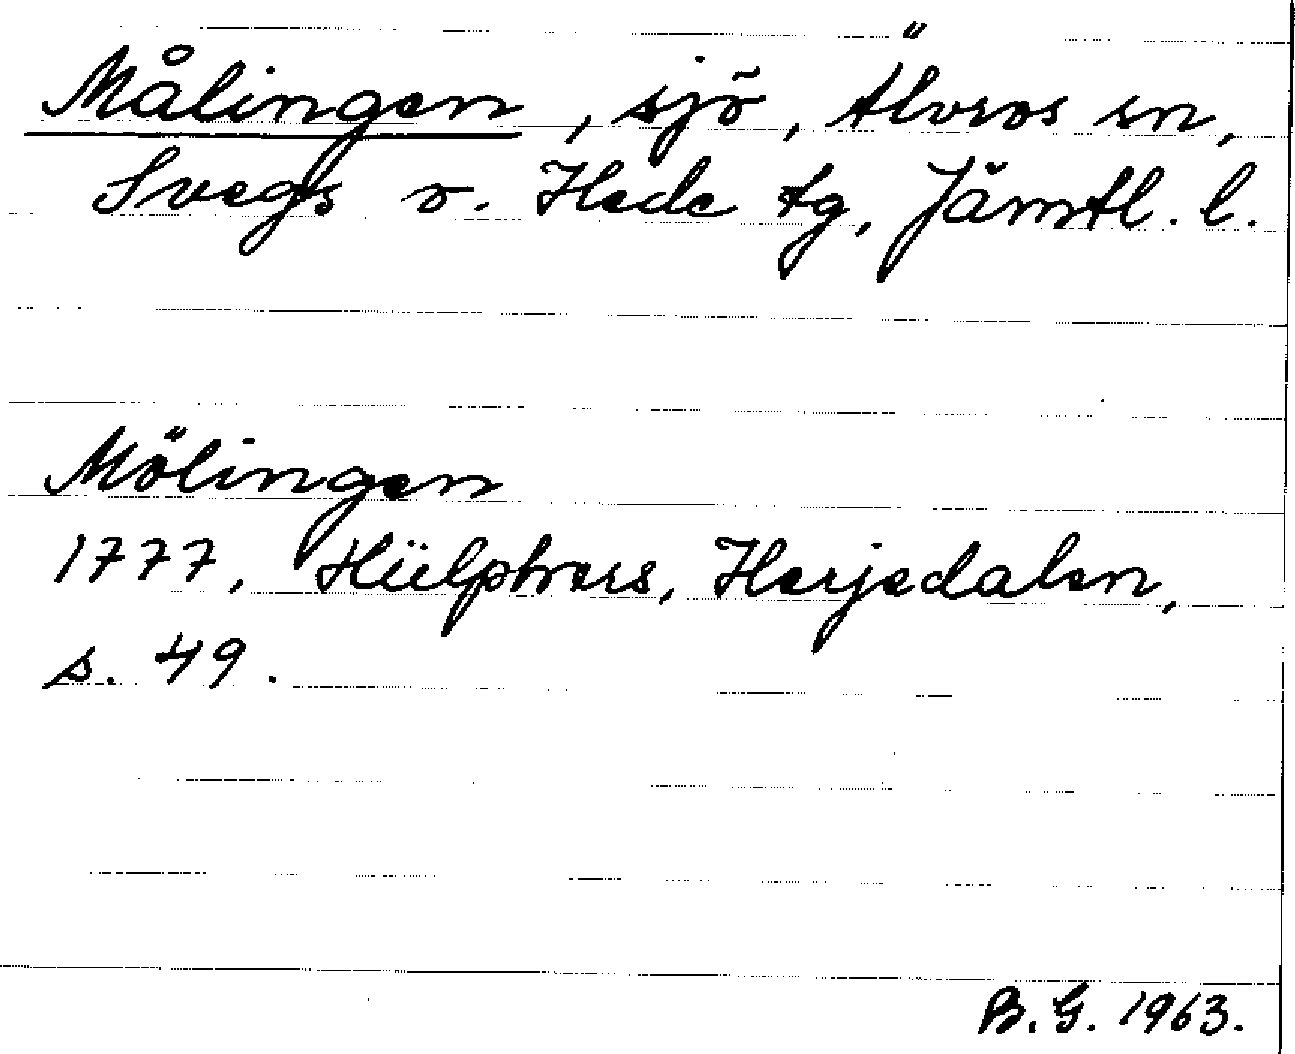 Målingen, sjö, Älvros sn,
Svegs o. Hede tg, Jämtl. l.
Mölingen
1777, Hülphers, Herjedalen,
s. 49.
B. G. 1963.